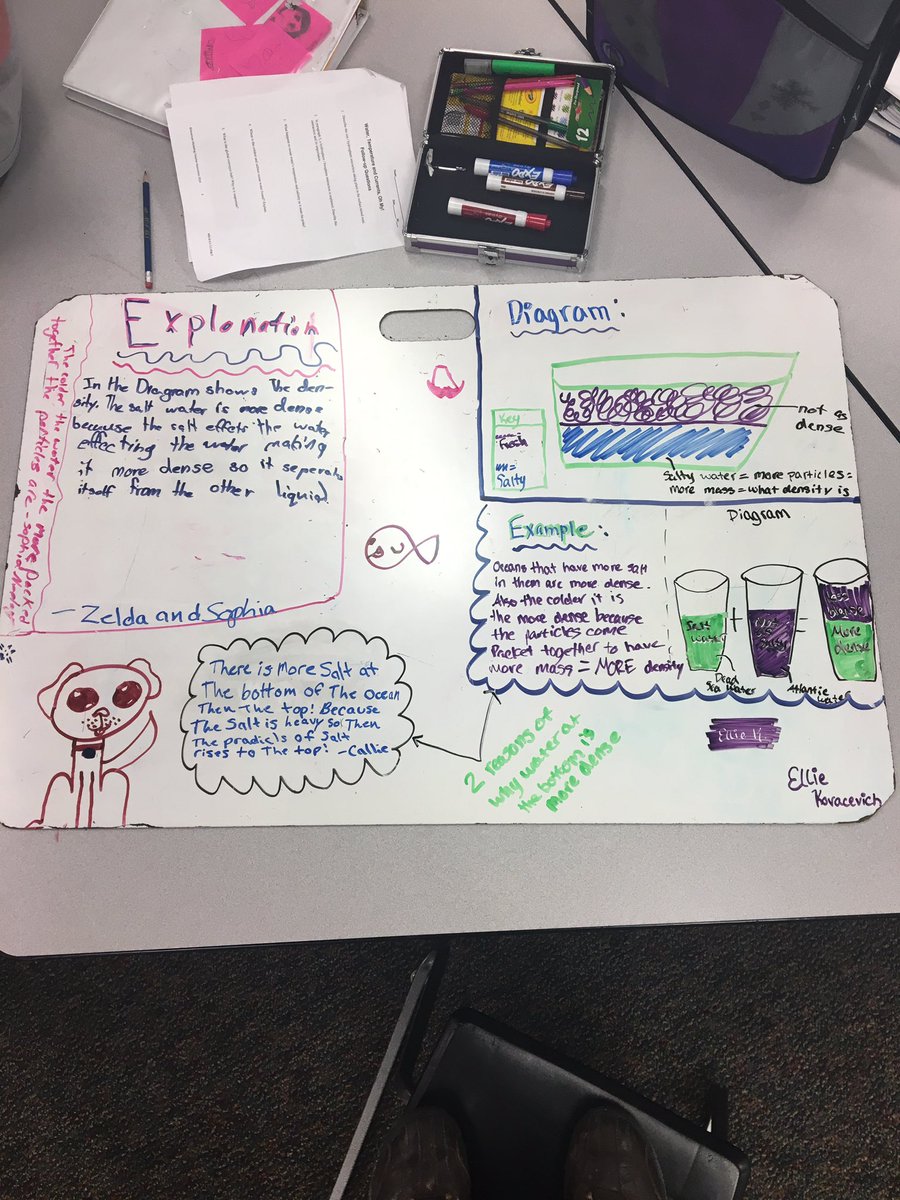 Water, Temperature and Currents, Oh My!
Follow-up Questions
EXPO
EXPO
12
Explanation
In the Diagram shows The den-
sity. The salt water is more dense
because the salt effets the water
effectring the water making
it more dense so it seperats
itself from the other liquid
- Zelda and Sophia
The colder the water the more Packed
together the particles are - Sophia
There is More Salt at
The bottom of The ocean
Then The top! Because
The Salt is heavy so Then
The pradicls of Salt
rises to The top! - Callie
Diagram:
Key
Fresh
=
Salty
not as
dense
Salty water = more particles =
more mass = what density is
Example:
Oceans that have more salt
in them are more dense.
Also the colder it is
the more dense because
the particles come
Packet together to have
more mass = MORE density
Diagram
Salt
water
+
=
Less
dense
More
dense
Dead
Sea water
Atlantic
water
2 reasons of
why water at
the bottom is
more dense
Ellie K.
Ellie
Kovacevich